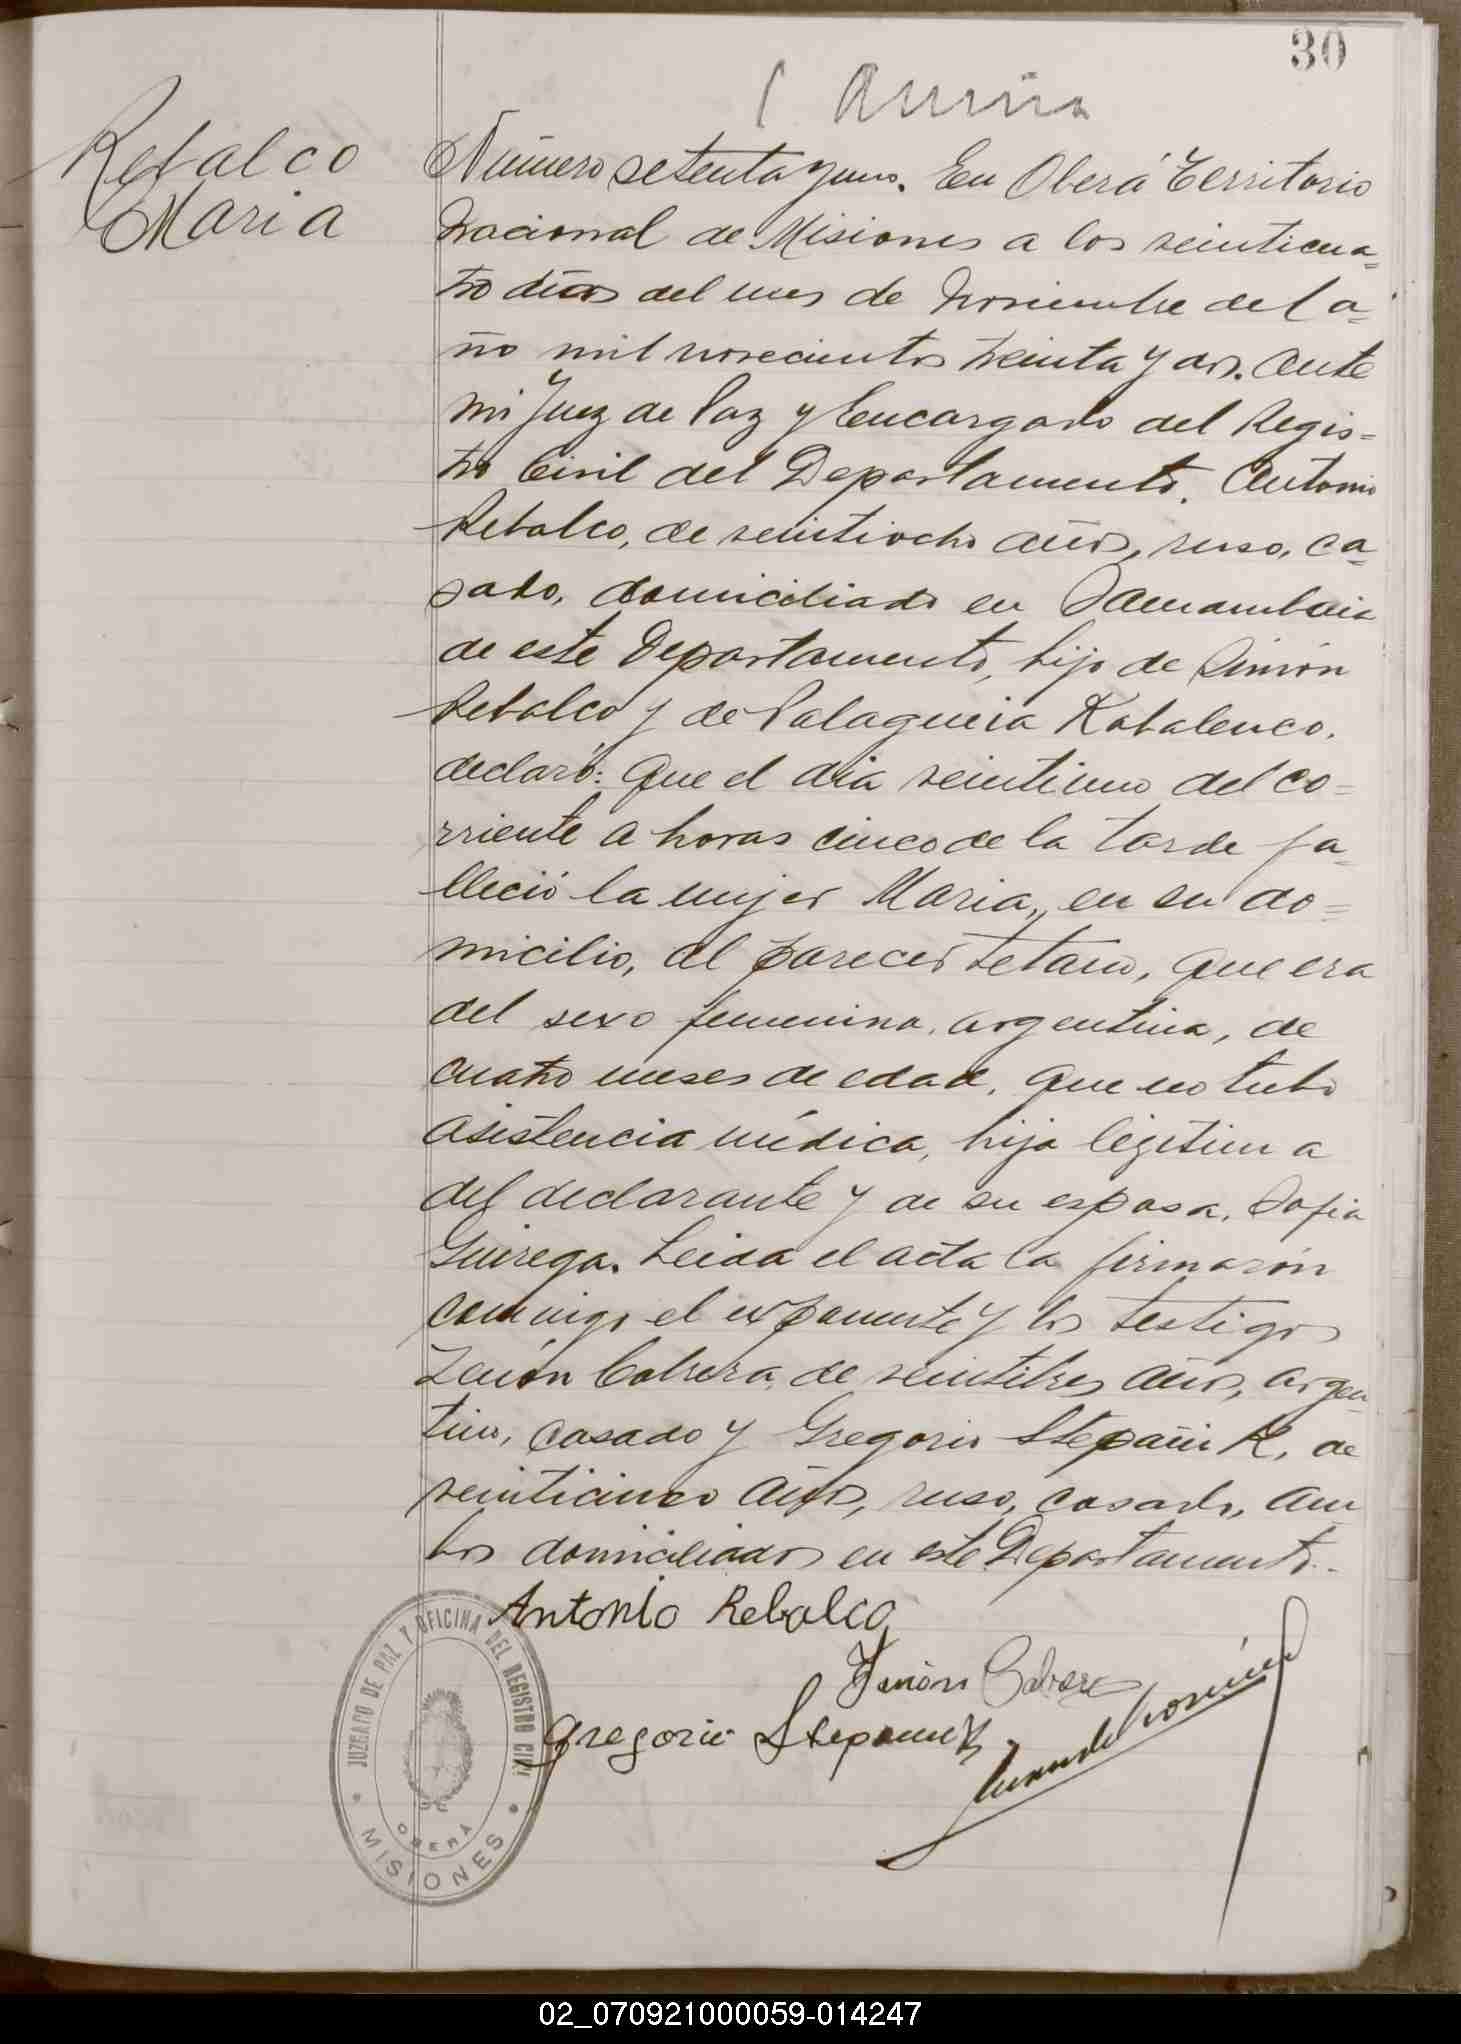 30
Rebalco
Maria
Número setenta y uno. En Oberá Territorio
Nacional de Misiones a los veinticua=
tro dias del mes de Noviembre del a=
ño mil novecientos treinta y dos. Ante
mi Juez de Paz y Encargado del Regis=
tro Civil del Departamento. Antonio
Rebalco, de veintiocho años, ruso, ca=
sado, domiciliado en
de este Departamento, hijo de Simón
Rebalco y de Kobalenco,
declaró: Que el dia veintiuno del co=
rriente a horas cinco de la tarde fa=
lleció la mujer Maria, en su do=
micilio, al parecer tetano, que era
del sexo femenino, argentina, de
cuatro meses de edad, que no tubo
asistencia médica, hija legitima
del declarante y de su esposa, Sofia
Guirega. Leida el acta la firmarón
conmigo el exponente y los testigos
Zenón Cabrera, de veintitres años, argen=
tino, casado y Gregorio Stepañuk, de
veinticinco años, ruso, casado, am
bos domiciliados en este Departamento.-
Antonio Rebalco
Zenón Cabrera
Gregorio Stepanuk
JUZGADO DE PAZ Y OFICINA DEL REGISTRO CIVIL
OBERÁ
MISIONES
02_070921000059-014247